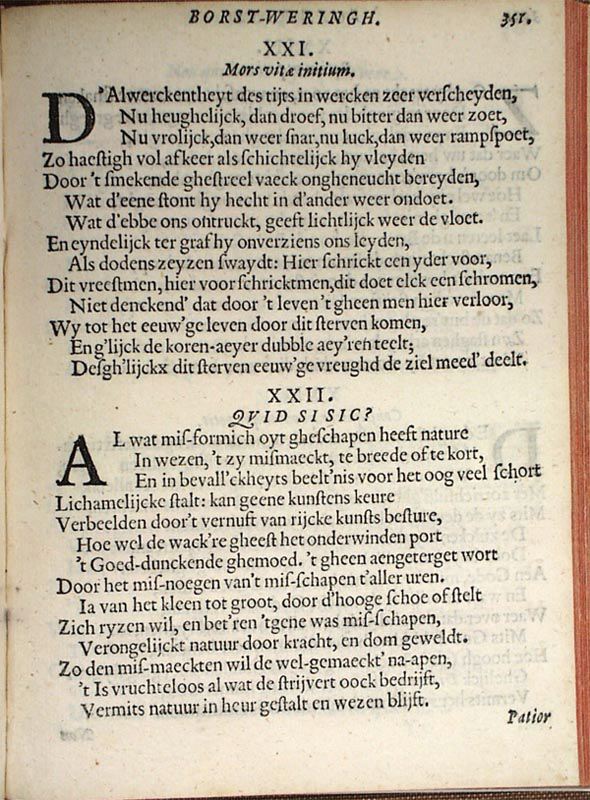 BORST-WERINGH. 351.
XXI.
Mors vitæ initium.
D'Alwerckentheyt des tijts in wercken zeer verscheyden,
Nu heughelijck, dan droef, nu bitter dan weer zoet,
Nu vrolijck, dan weer snar, nu luck, dan weer rampspoet,
Zo haestigh vol afkeer als schichtelijck hy vleyden
Door 't smekende ghestreel vaeck ongheneucht bereyden,
Wat d'eene stont hy hecht in d'ander weer ondoet.
Wat d'ebbe ons ontruckt, geeft lichtlijck weer de vloet.
En eyndelijck ter graf hy onverziens ons leyden,
Als dodens zeyzen swaydt: Hier schrickt een yder voor,
Dit vreestmen, hier voor schricktmen, dit doet elck een schromen,
Niet denckend' dat door 't leven 't gheen men hier verloor,
Wy tot het eeuw'ge leven door dit sterven komen,
En g'lijck de koren-aeyer dubble aey'ren teelt;
Desgh'lijckx dit sterven eeuw'ge vreughd de ziel meed' deelt.
XXII.
QVID SI SIC?
AL wat mis-formich oyt gheschapen heeft nature
In wezen, 't zy mismaeckt, te breede of te kort,
En in bevall'ckheyts beelt'nis voor het oog veel schort
Lichamelijcke stalt: kan geene kunstens keure
Verbeelden door't vernuft van rijcke kunsts besture,
Hoe wel de wack're gheest het onderwinden port
't Goed-dunckende ghemoed. 't gheen aengeterget wort
Door het mis-noegen van't mis-schapen t'aller uren.
Ia van het kleen tot groot, door d'hooge schoe of stelt
Zich ryzen wil, en bet'ren 'tgene was mis-schapen,
Verongelijckt natuur door kracht, en dom geweldt.
Zo den mis-maeckten wil de wel-gemaeckt' na-apen,
't Is vruchteloos al wat de strijvert oock bedrijft,
Vermits natuur in heur gestalt en wezen blijft.
Patior